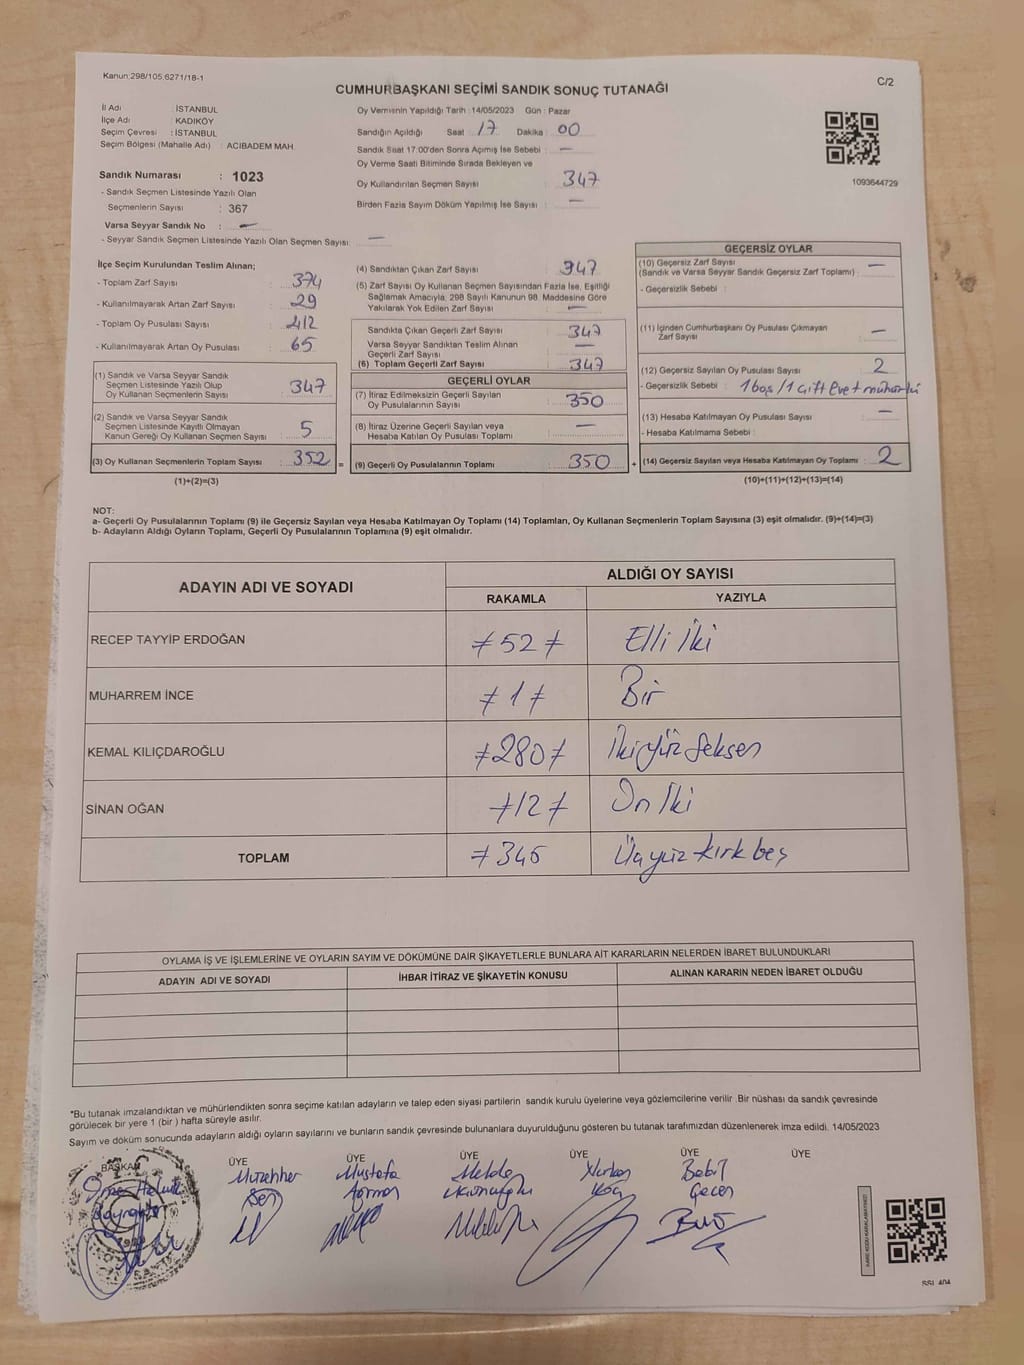 Kanun:298/105.6271/18-1
C/2
CUMHURBAŞKANI SEÇİMİ SANDIK SONUÇ TUTANAĞI
İl Adı : İSTANBUL
İlçe Adı : KADIKÖY
Seçim Çevresi : İSTANBUL
Seçim Bölgesi (Mahalle Adı) : ACIBADEM MAH.
Sandık Numarası : 1023
- Sandık Seçmen Listesinde Yazılı Olan
Seçmenlerin Sayısı : 367
Varsa Seyyar Sandık No : —
- Seyyar Sandık Seçmen Listesinde Yazılı Olan Seçmen Sayısı: —
Oy Vermenin Yapıldığı Tarih :14/05/2023 Gün : Pazar
Sandığın Açıldığı Saat : 17 Dakika : 00
Sandık Saat 17:00'den Sonra Açılmış İse Sebebi : —
Oy Verme Saati Bitiminde Sırada Bekleyen ve
Oy Kullandırılan Seçmen Sayısı : 347
Birden Fazla Sayım Döküm Yapılmış İse Sayısı : —
1093644729
İlçe Seçim Kurulundan Teslim Alınan;
- Toplam Zarf Sayısı : 374
- Kullanılmayarak Artan Zarf Sayısı : 29
- Toplam Oy Pusulası Sayısı : 412
- Kullanılmayarak Artan Oy Pusulası : 65
(1) Sandık ve Varsa Seyyar Sandık
Seçmen Listesinde Yazılı Olup
Oy Kullanan Seçmenlerin Sayısı : 347
(2) Sandık ve Varsa Seyyar Sandık
Seçmen Listesinde Kayıtlı Olmayan
Kanun Gereği Oy Kullanan Seçmen Sayısı : 5
(3) Oy Kullanan Seçmenlerin Toplam Sayısı : 352 =
(1)+(2)=(3)
(4) Sandıktan Çıkan Zarf Sayısı : 347
(5) Zarf Sayısı Oy Kullanan Seçmen Sayısından Fazla İse, Eşitliği
Sağlamak Amacıyla, 298 Sayılı Kanunun 98. Maddesine Göre
Yakılarak Yok Edilen Zarf Sayısı : —
Sandıkta Çıkan Geçerli Zarf Sayısı : 347
Varsa Seyyar Sandıktan Teslim Alınan
Geçerli Zarf Sayısı : —
(6) Toplam Geçerli Zarf Sayısı : 347
GEÇERLİ OYLAR
(7) İtiraz Edilmeksizin Geçerli Sayılan
Oy Pusulalarının Sayısı : 350
(8) İtiraz Üzerine Geçerli Sayılan veya
Hesaba Katılan Oy Pusulası Toplamı : —
(9) Geçerli Oy Pusulalarının Toplamı : 350 +
GEÇERSİZ OYLAR
(10) Geçersiz Zarf Sayısı
(Sandık ve Varsa Seyyar Sandık Geçersiz Zarf Toplamı) : —
- Geçersizlik Sebebi :
(11) İçinden Cumhurbaşkanı Oy Pusulası Çıkmayan
Zarf Sayısı : —
(12) Geçersiz Sayılan Oy Pusulası Sayısı : 2
- Geçersizlik Sebebi : 1 boş / 1 çift Evet mühürlü
(13) Hesaba Katılmayan Oy Pusulası Sayısı : —
- Hesaba Katılmama Sebebi :
(14) Geçersiz Sayılan veya Hesaba Katılmayan Oy Toplamı : 2
(10)+(11)+(12)+(13)=(14)
NOT:
a- Geçerli Oy Pusulalarının Toplamı (9) ile Geçersiz Sayılan veya Hesaba Katılmayan Oy Toplamı (14) Toplamları, Oy Kullanan Seçmenlerin Toplam Sayısına (3) eşit olmalıdır. (9)+(14)=(3)
b- Adayların Aldığı Oyların Toplamı, Geçerli Oy Pusulalarının Toplamına (9) eşit olmalıdır.
ADAYIN ADI VE SOYADI ALDIĞI OY SAYISI
RAKAMLA YAZIYLA
RECEP TAYYİP ERDOĞAN ≠52≠ Elli İki
MUHARREM İNCE ≠1≠ Bir
KEMAL KILIÇDAROĞLU ≠280≠ İkiyüz Seksen
SİNAN OĞAN ≠12≠ On İki
TOPLAM ≠345 Üçyüz kırk beş
OYLAMA İŞ VE İŞLEMLERİNE VE OYLARIN SAYIM VE DÖKÜMÜNE DAİR ŞİKAYETLERLE BUNLARA AİT KARARLARIN NELERDEN İBARET BULUNDUKLARI
ADAYIN ADI VE SOYADI İHBAR İTİRAZ VE ŞİKAYETİN KONUSU ALINAN KARARIN NEDEN İBARET OLDUĞU
*Bu tutanak imzalandıktan ve mühürlendikten sonra seçime katılan adayların ve talep eden siyasi partilerin sandık kurulu üyelerine veya gözlemcilerine verilir .Bir nüshası da sandık çevresinde
görülecek bir yere 1 (bir ) hafta süreyle asılır.
Sayım ve döküm sonucunda adayların aldığı oyların sayılarını ve bunların sandık çevresinde bulunanlara duyurulduğunu gösteren bu tutanak tarafımızdan düzenlenerek imza edildi. 14/05/2023
BAŞKAN ÜYE ÜYE ÜYE ÜYE ÜYE ÜYE
Muzehher Mustafa Babil
Şen Geçen